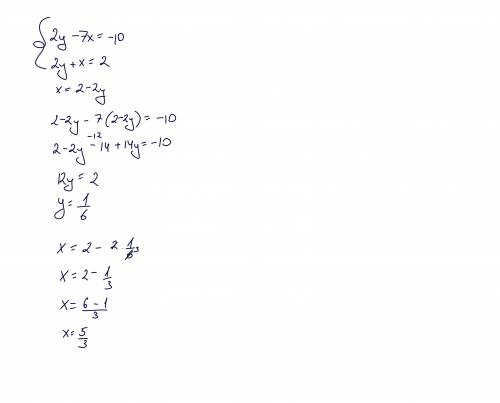 2y - 7x = -10
2y + x = 2
x = 2 - 2y
2 - 2y - 7(2 - 2y) = -10
-12
2 - 2y - 14 + 14y = -10
12y = 2
y = 1/6
x = 2 - 2 · 1/6 3
x = 2 - 1/3
x = 6 - 1/3
x = 5/3